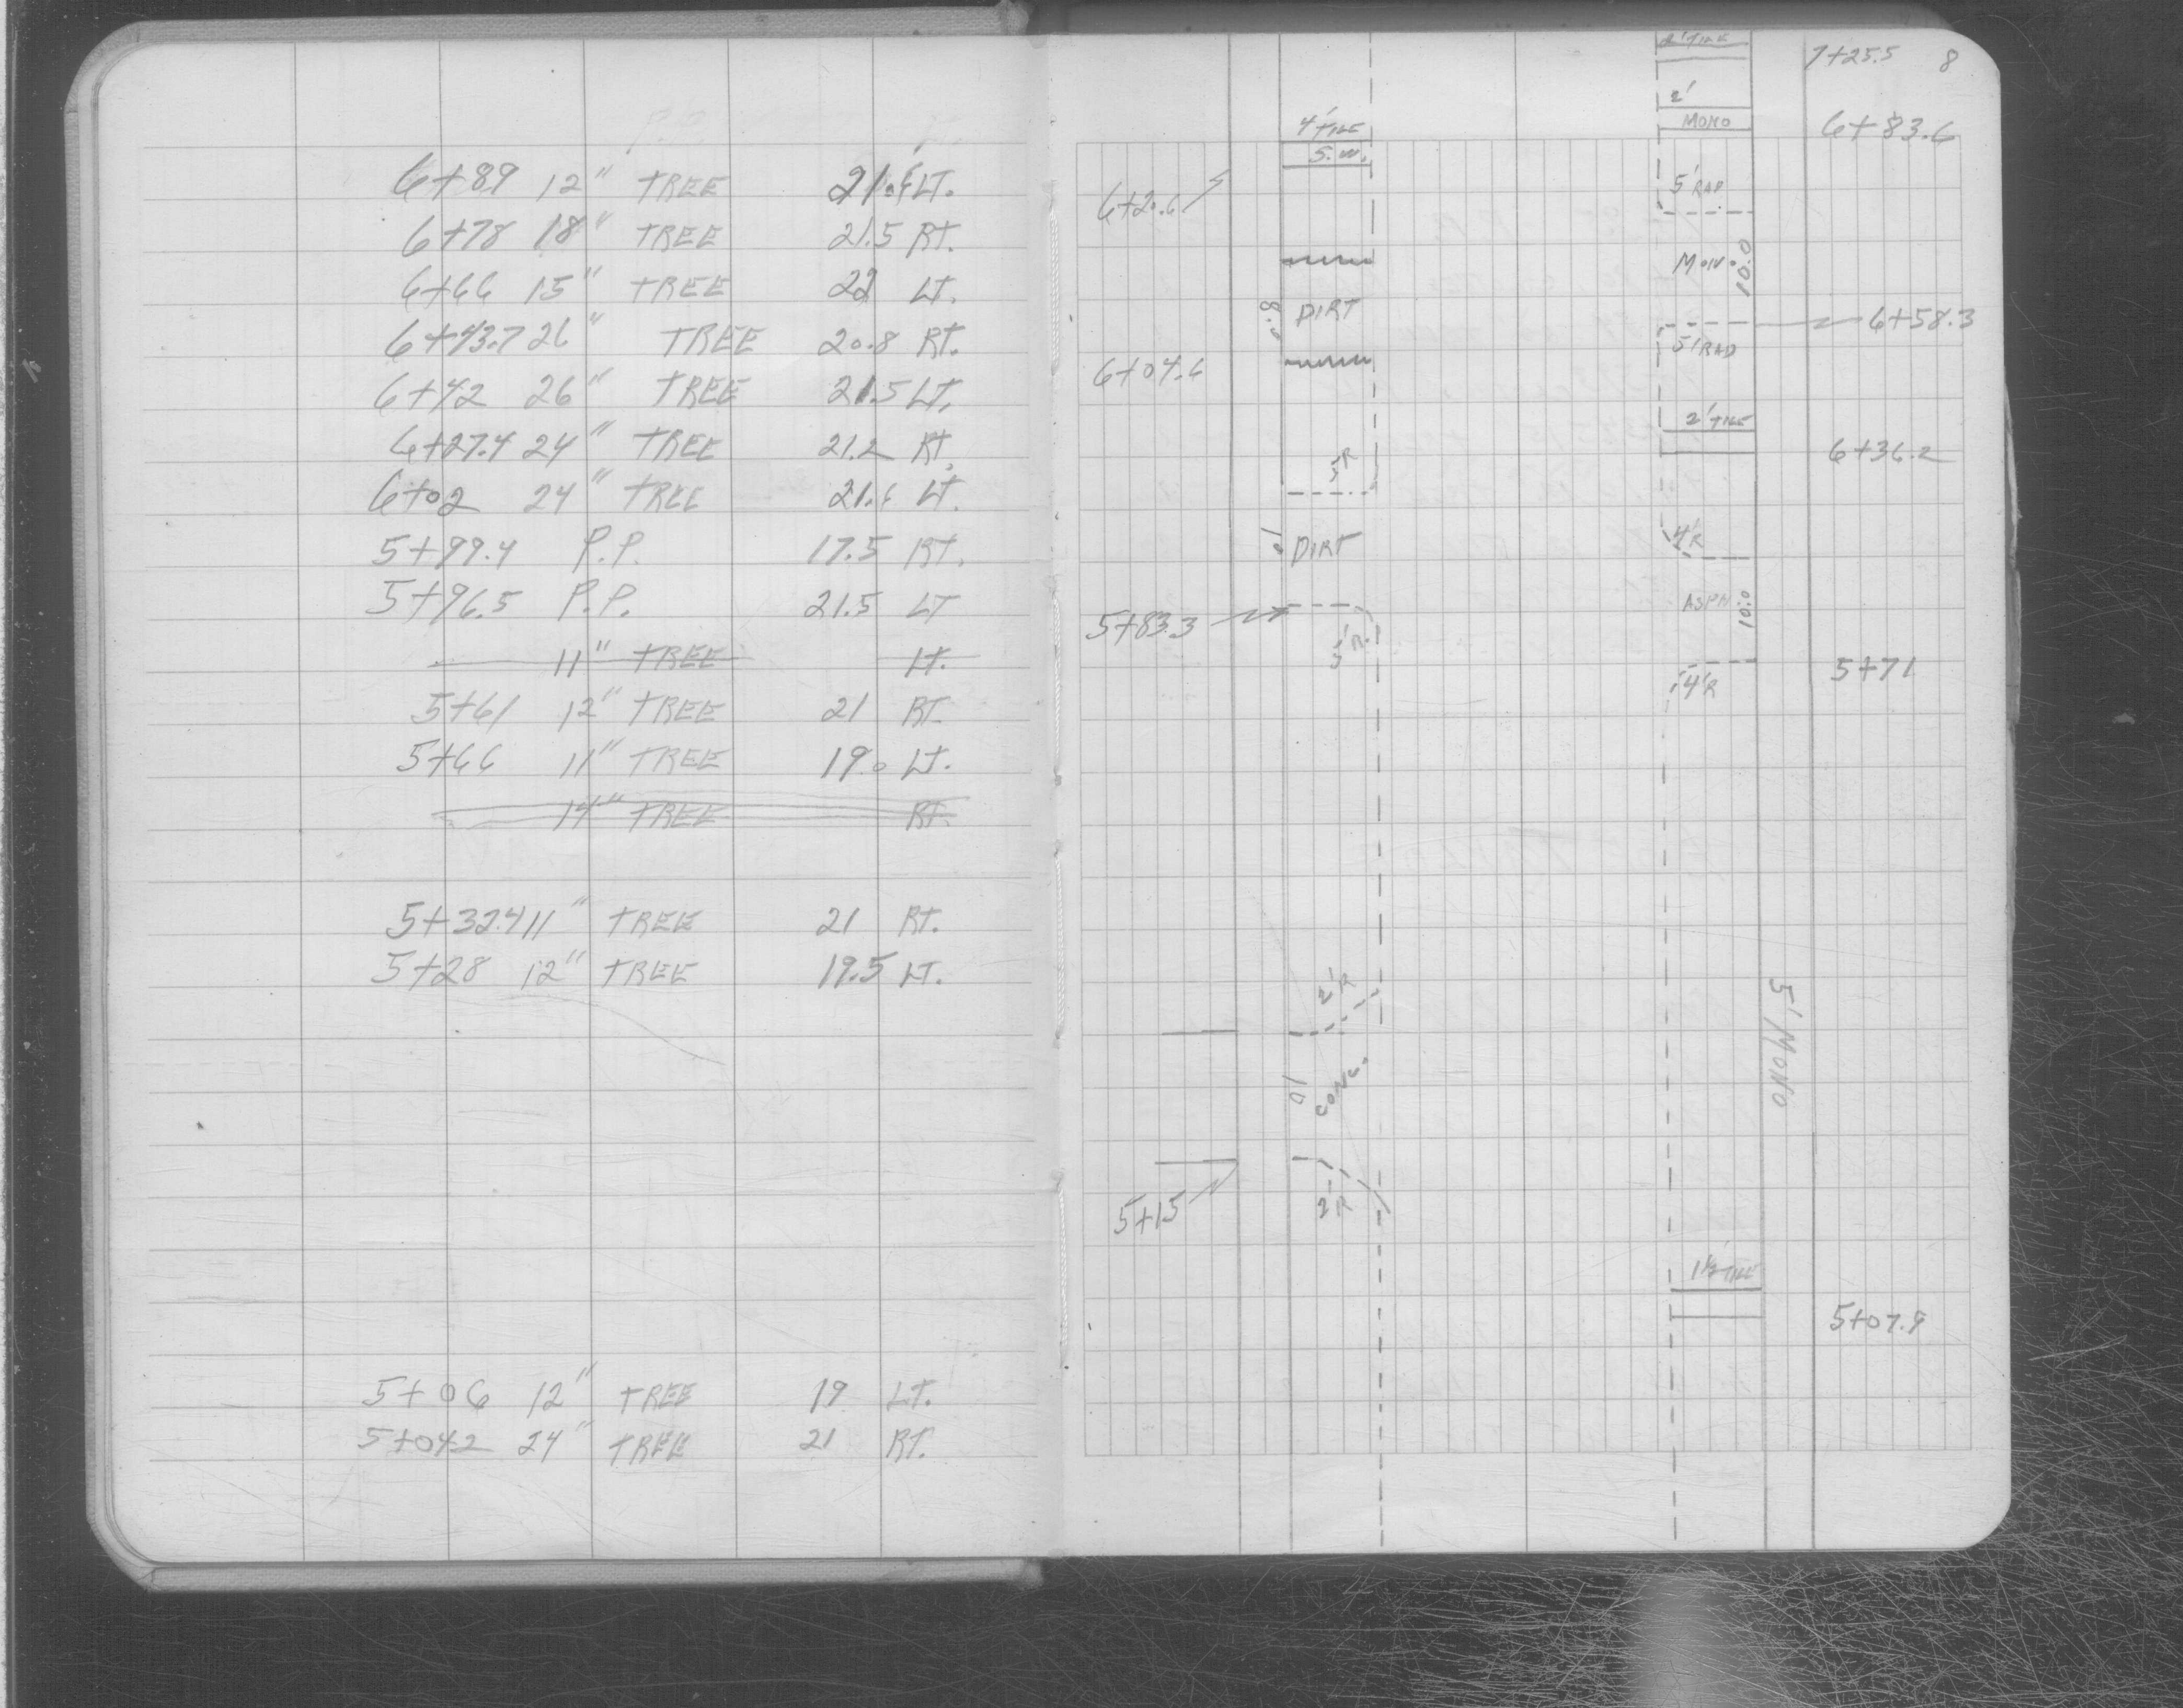 6+89 12" TREE 21.6 LT.
6+78 18" TREE 21.5 RT.
6+66 15" TREE 22 LT.
6+43.7 26" TREE 20.8 RT.
6+42 26" TREE 21.5 LT.
6+27.4 24" TREE 21.2 RT.
6+02 24" TREE 21.6 LT.
5+99.4 P.P. 17.5 RT.
5+96.5 P.P. 21.5 LT
11" TREE LT.
5+61 12" TREE 21 RT.
5+66 11" TREE 19.0 LT.
14" TREE RT.
5+32.4 11" TREE 21 RT.
5+28 12" TREE 19.5 LT.
5+06 12" TREE 19 LT.
5+04.2 24" TREE 21 RT.
2' TILE
7+25.5 8
2'
MONO 6+83.6
4' TILE
S.W.
6+20.6
5' RAD
MONO. 10.0
8.0 DIRT
6+58.3
5' RAD
6+04.6
2' TILE
6+36.2
5' R
10 DIRT
4' R
ASPH. 10.0
5+83.3
5' R.
5+71
4' R
2' R
10 CONC.
5' MONO
2' R
5+15
1½' TILE
5+07.9